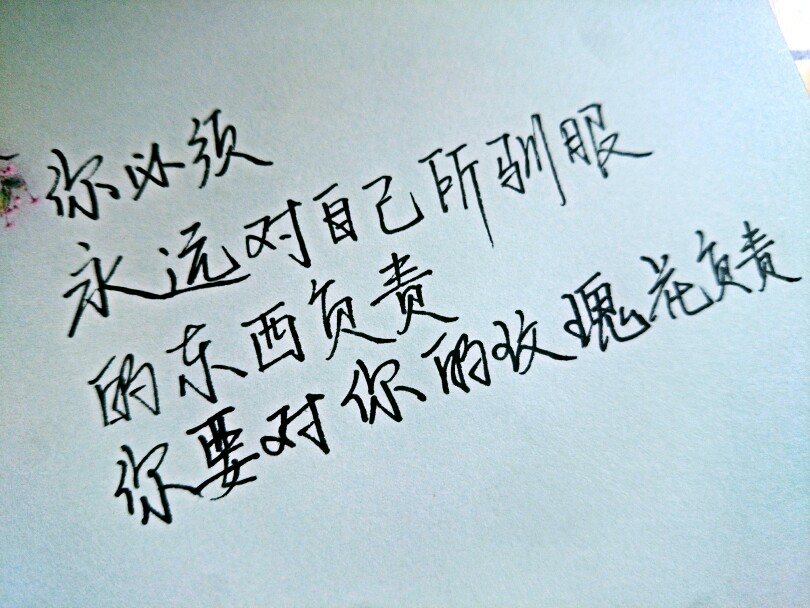 你必须
永远对自己所驯服
的东西负责
你要对你的玫瑰花负责